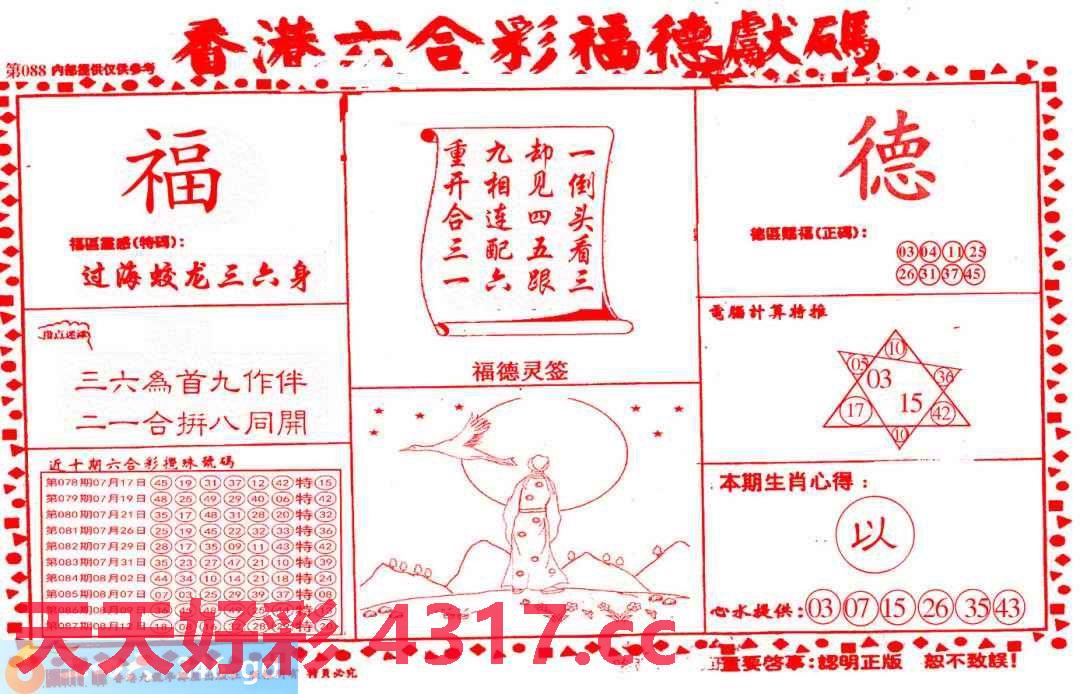 香港六合彩福德獻碼
第088 内部提供仅供参考
福
福區靈感(特碼):
过海蛟龙三六身
指点迷津
三六為首九作伴
二一合拼八同開
近十期六合彩攪珠號碼
第078期07月17日 45 19 31 37 12 42 特 15
第079期07月19日 48 25 49 29 40 06 特 42
第080期07月21日 35 17 48 31 28 20 特 32
第081期07月26日 25 19 45 22 32 33 特 36
第082期07月29日 28 17 35 09 11 43 特 42
第083期07月31日 35 23 27 47 21 10 特 39
第084期08月02日 44 34 10 14 21 18 特 24
第085期08月07日 07 03 25 29 39 37 特 08
第086期08月09日
第087期08月12日
一倒头看三
却见四五跟
九相连配六
重开合三一
福德灵签
德
德區賜福(正碼):
03 04 11 25
26 31 37 45
電腦計算特推
10
05
03
36
17
15
42
10
本期生肖心得:
以
心水提供: 03 07 15 26 35 43
天天好彩 4317.cc
重要啓事:認明正版 恕不致誤!